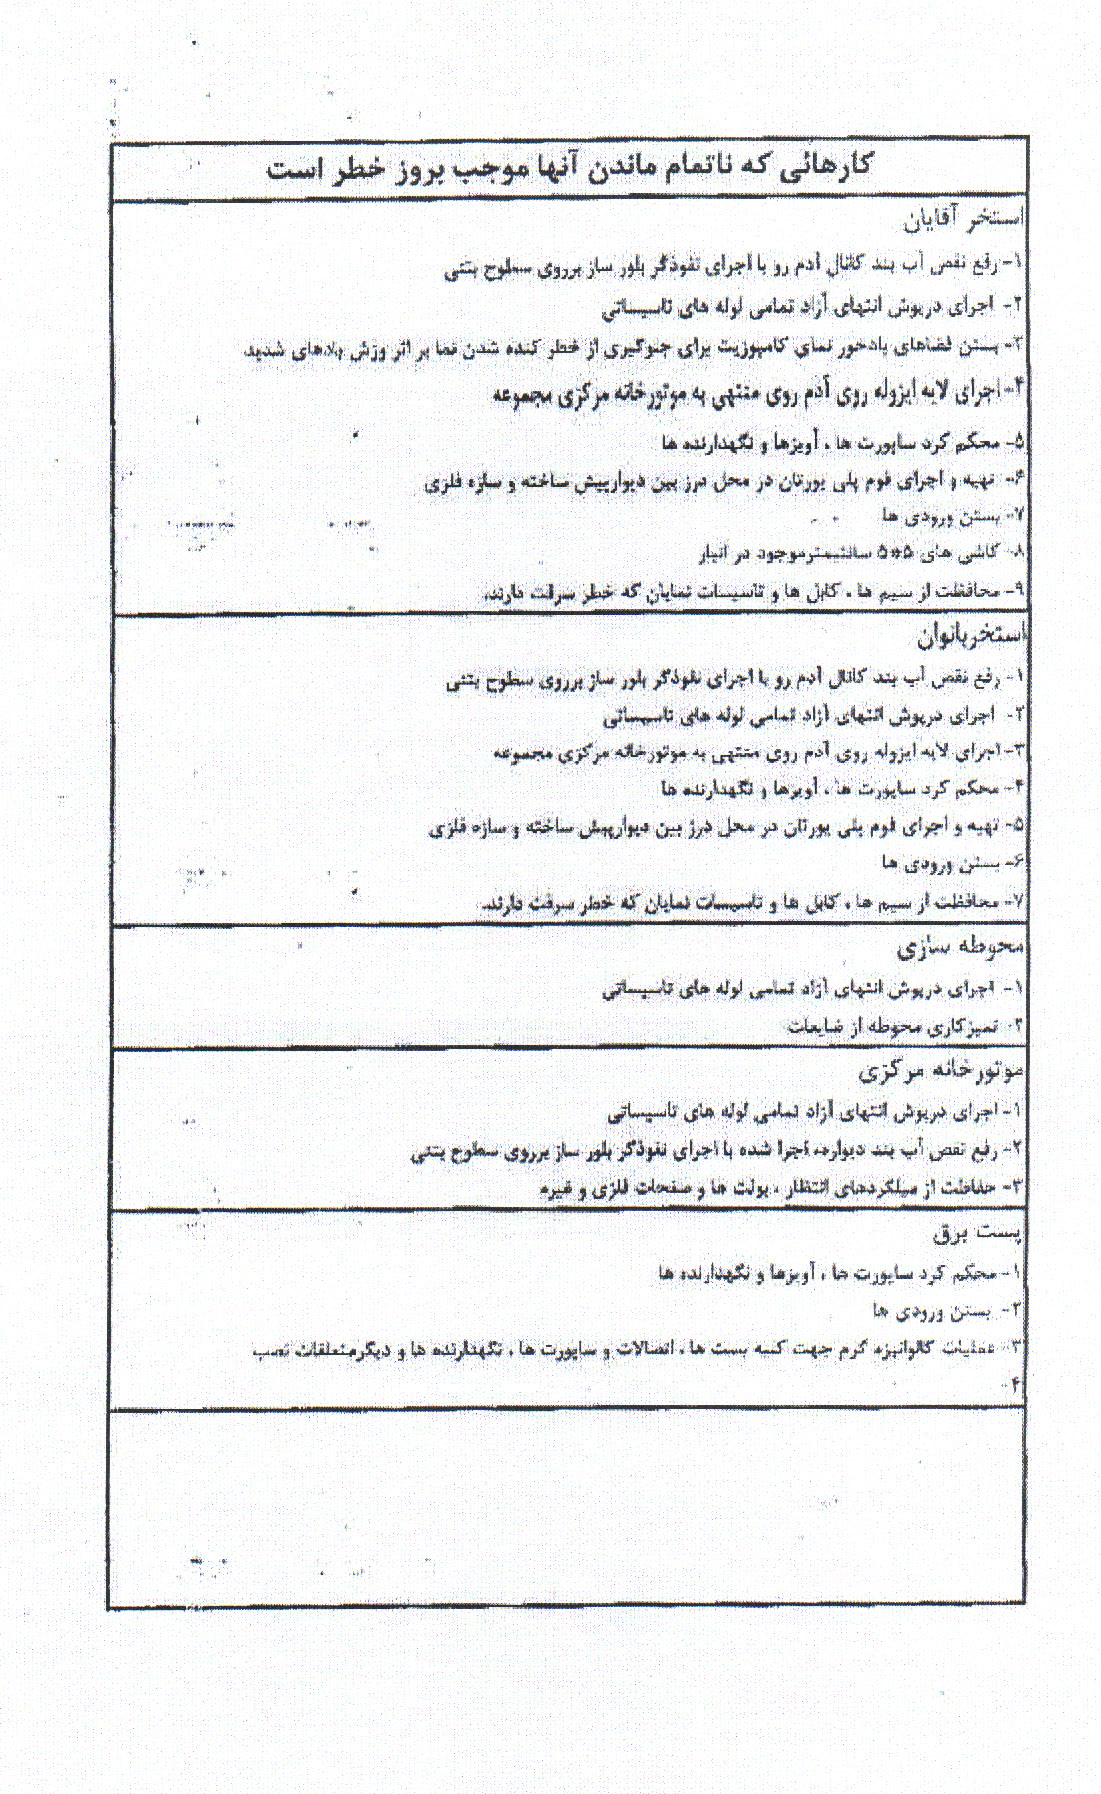 کارهائی که ناتمام ماندن آنها موجب بروز خطر است
استخر آقایان
۱- رفع نقص آب بند کانال آدم رو با اجرای نفوذگر بلور ساز برروی سطوح بتنی
۲- اجرای درپوش انتهای آزاد تمامی لوله های تاسیساتی
۳- بستن فضاهای بادخور نمای کامپوزیت برای جلوگیری از خطر کنده شدن نما بر اثر وزش بادهای شدید
۴- اجرای لایه ایزوله روی آدم روی منتهی به موتورخانه مرکزی مجموعه
۵- محکم کرد ساپورت ها ، آویزها و نگهدارنده ها
۶- تهیه و اجرای فوم پلی یورتان در محل درز بین دیوارپیش ساخته و سازه فلزی
۷- بستن ورودی ها
۸- کاشی های ۵*۵ سانتیمترموجود در انبار
۹- محافظت از سیم ها ، کابل ها و تاسیسات نمایان که خطر سرقت دارند.
استخربانوان
۱- رفع نقص آب بند کانال آدم رو با اجرای نفوذگر بلور ساز برروی سطوح بتنی
۲- اجرای درپوش انتهای آزاد تمامی لوله های تاسیساتی
۳- اجرای لایه ایزوله روی آدم روی منتهی به موتورخانه مرکزی مجموعه
۴- محکم کرد ساپورت ها ، آویزها و نگهدارنده ها
۵- تهیه و اجرای فوم پلی یورتان در محل درز بین دیوارپیش ساخته و سازه فلزی
۶- بستن ورودی ها
۷- محافظت از سیم ها ، کابل ها و تاسیسات نمایان که خطر سرقت دارند.
محوطه سازی
۱- اجرای درپوش انتهای آزاد تمامی لوله های تاسیساتی
۲- تمیزکاری محوطه از ضایعات
موتورخانه مرکزی
۱- اجرای درپوش انتهای آزاد تمامی لوله های تاسیساتی
۲- رفع نقص آب بند دیواره اجرا شده با اجرای نفوذگر بلور ساز برروی سطوح بتنی
۳- حفاظت از میلگردهای انتظار ، بولت ها و صفحات فلزی و غیره
پست برق
۱- محکم کرد ساپورت ها ، آویزها و نگهدارنده ها
۲- بستن ورودی ها
۳- عملیات گالوانیزه گرم جهت کلیه بست ها ، اتصالات و ساپورت ها ، نگهدارنده ها و دیگرمتعلقات نصب
۴-